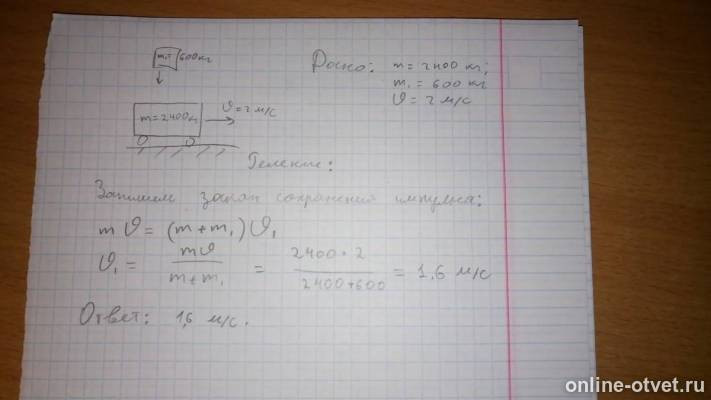 m₁= 600кг
m=2400кг
𝜗=2 м/с
Дано: m = 2400 кг;
m₁ = 600 кг
𝜗 = 2 м/с
Решение:
Запишем закон сохранения импульса:
m𝜗 = (m+m₁)𝜗₁
𝜗₁ = m𝜗 / m+m₁ = 2400·2 / 2400+600 = 1,6 м/с
Ответ: 1,6 м/с.
online-otvet.ru